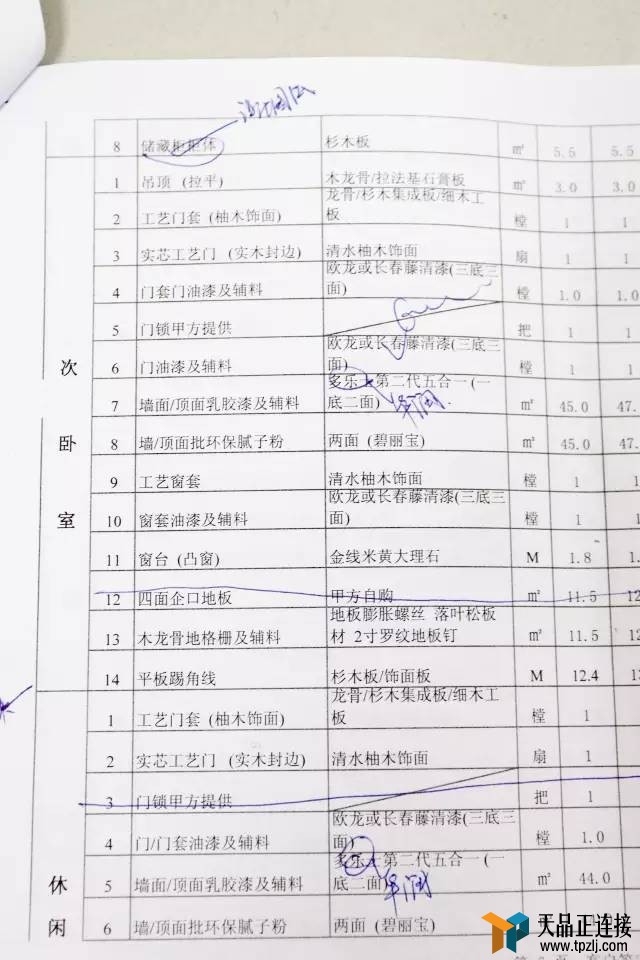 8 储藏柜柜体 杉木板 ㎡ 5.5 5.5
1 吊顶 (拉平) 木龙骨/拉法基石膏板 ㎡ 3.0 3.0
2 工艺门套 (柚木饰面) 龙骨/杉木集成板/细木工板 樘 1 1
3 实芯工艺门 (实木封边) 清水柚木饰面 扇 1 1
4 门套门油漆及辅料 欧龙或长春藤清漆(三底三面) 樘 1.0 1.0
5 门锁甲方提供 把 1 1
次
6 门油漆及辅料 欧龙或长春藤清漆(三底三面) 樘 1 1
7 墙面/顶面乳胶漆及辅料 多乐士第二代五合一 (一底二面) ㎡ 45.0 47.
卧
8 墙/顶面批环保腻子粉 两面 (碧丽宝) ㎡ 45.0 47.
9 工艺窗套 清水柚木饰面 樘 1 1
室
10 窗套油漆及辅料 欧龙或长春藤清漆(三底三面) 樘 1 1
11 窗台 (凸窗) 金线米黄大理石 M 1.8 1.
12 四面企口地板 甲方自购 ㎡ 11.5 12
13 木龙骨地格栅及辅料 地板膨胀螺丝 落叶松板材 2寸罗纹地板钉 ㎡ 11.5 12
14 平板踢角线 杉木板/饰面板 M 12.4
1 工艺门套 (柚木饰面) 龙骨/杉木集成板/细木工板 樘 1
2 实芯工艺门 (实木封边) 清水柚木饰面 扇 1
3 门锁甲方提供 把 1
4 门/门套油漆及辅料 欧龙或长春藤清漆(三底三面) 樘 1.0
休
5 墙面/顶面乳胶漆及辅料 多乐士第二代五合一 (一底二面) ㎡ 44.0
闲
6 墙/顶面批环保腻子粉 两面 (碧丽宝)
天品正连接
www.tpzlj.com